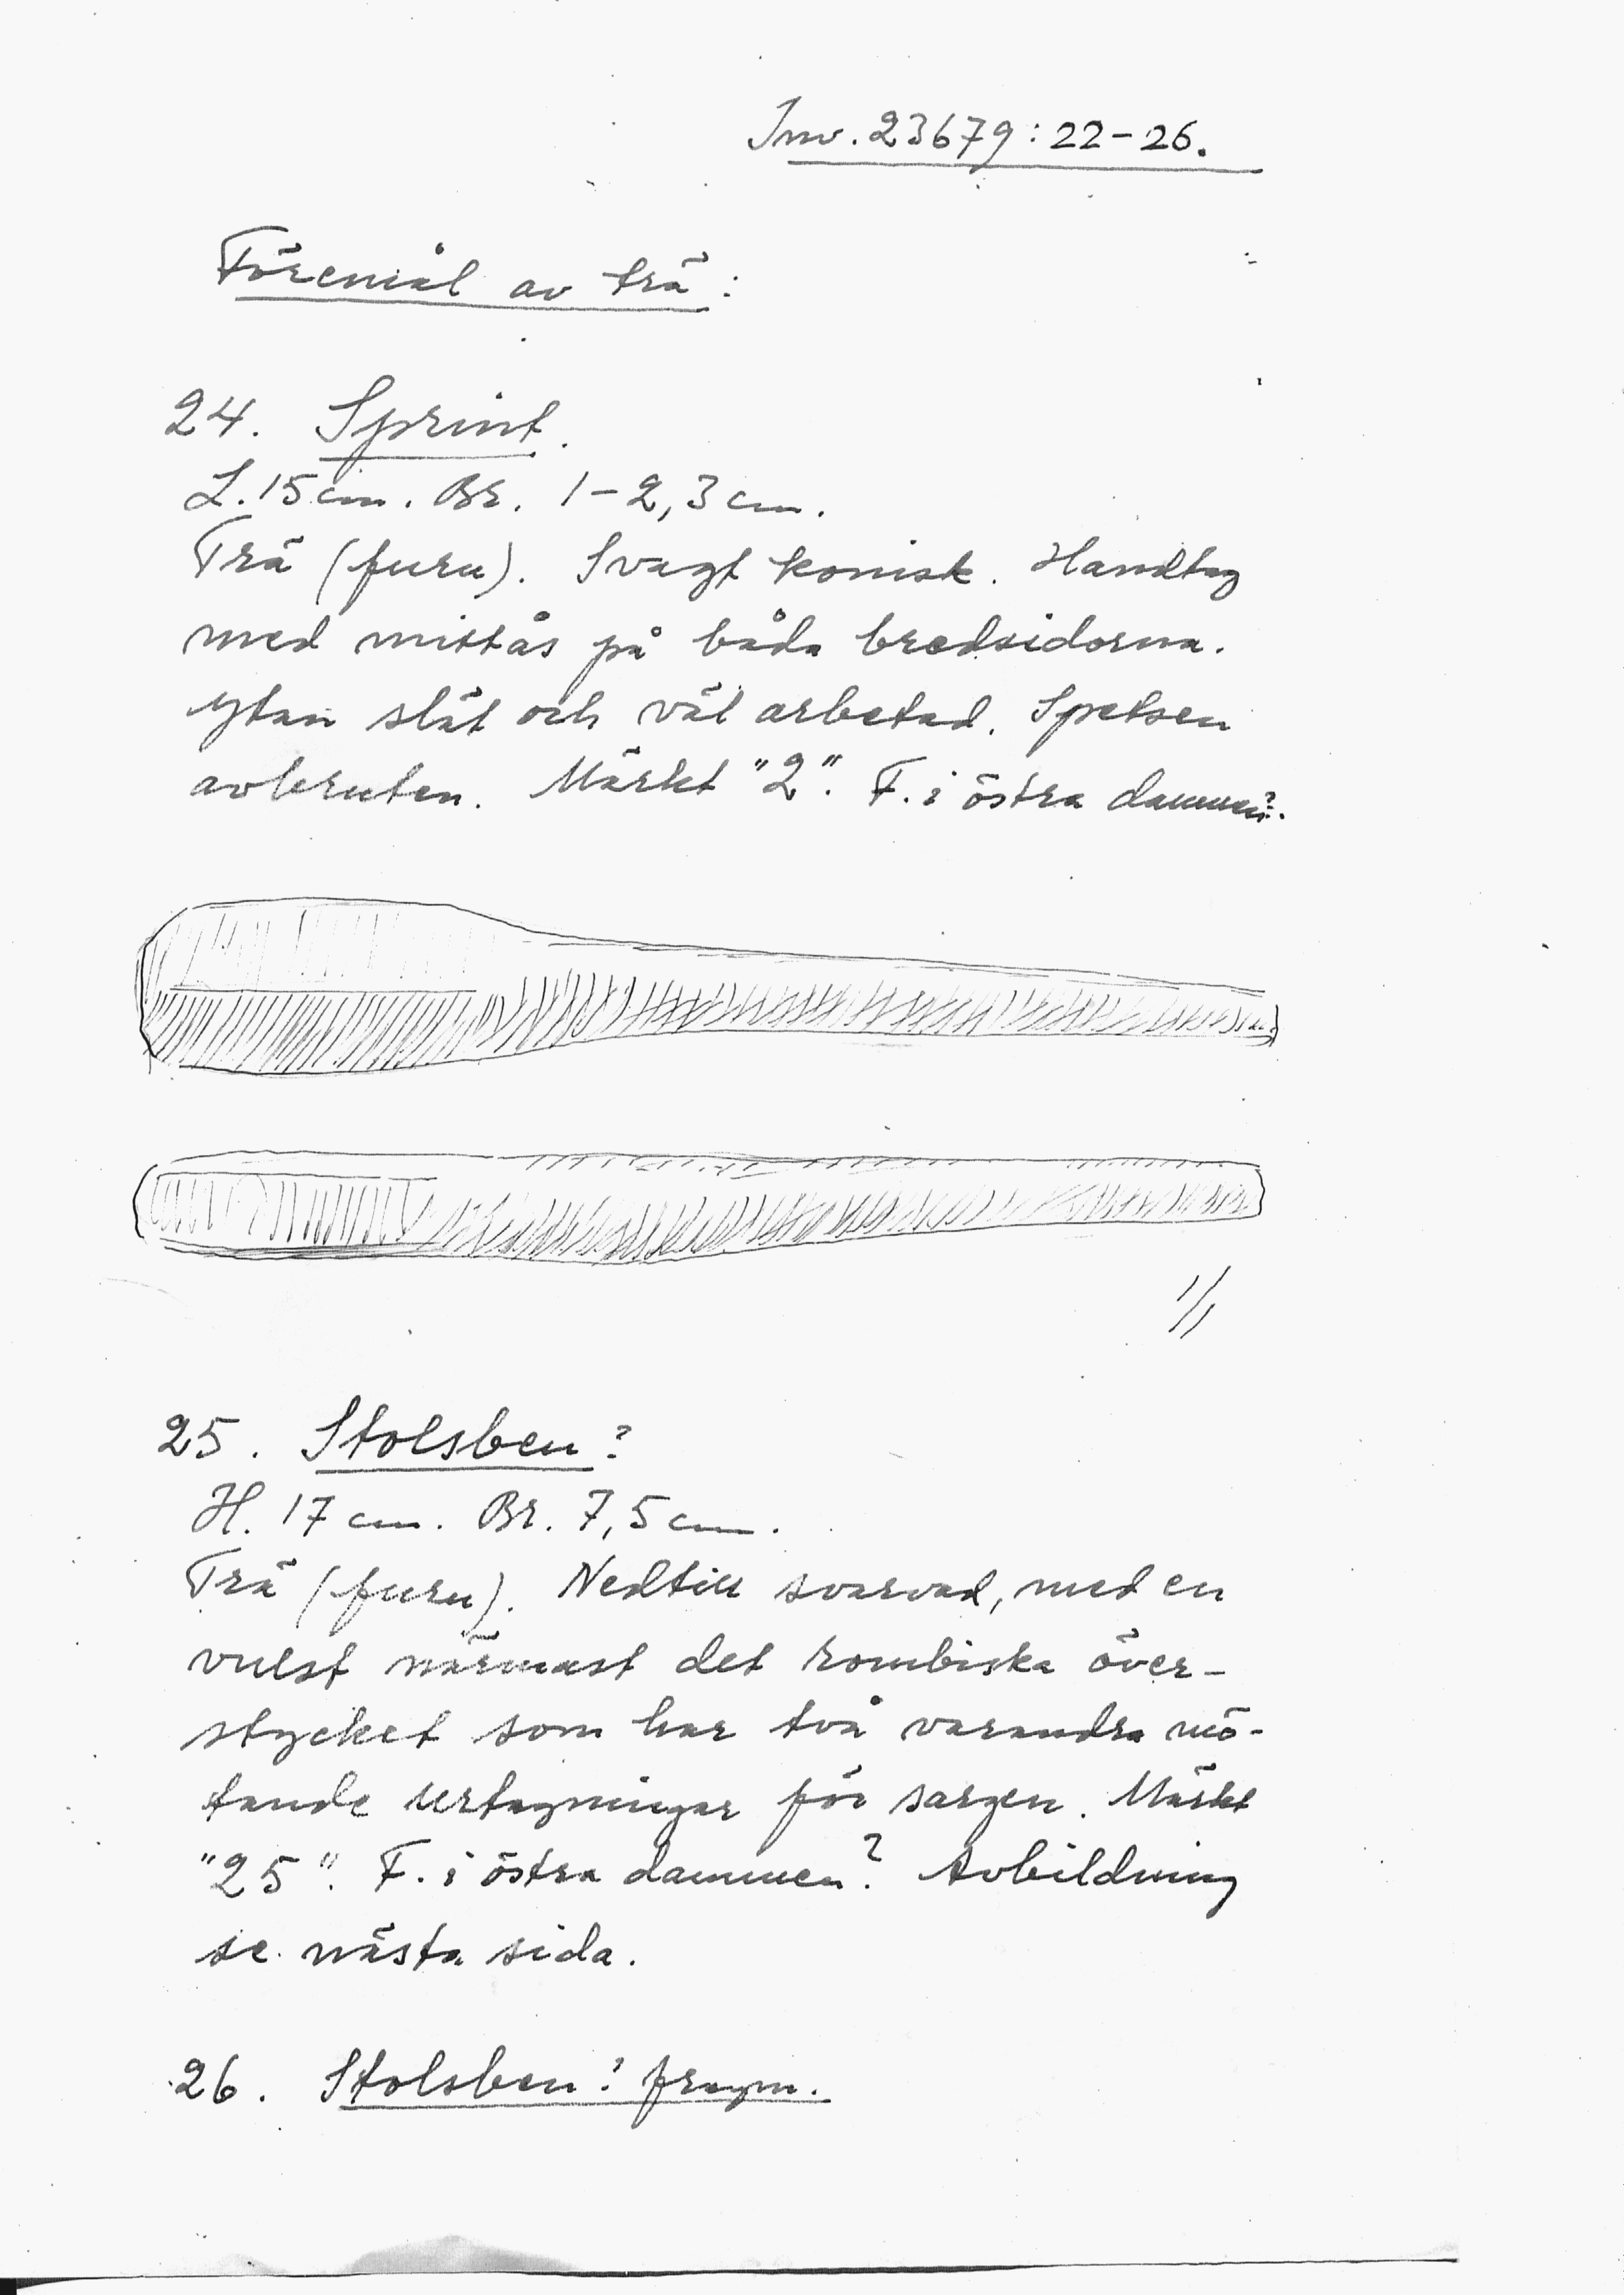 Inv. 23679:22-26.
Föremål av trä:
24. Sprint.
L. 15 cm. Br. 1-2,3 cm.
Trä (furu). Svagt konisk. Handtag
med mittås på båda bredsidorna.
Ytan slät och väl arbetad. Spetsen
avbruten. Märkt "2". F. i östra dammen?.
1/1
25. Stolsben?
H. 17 cm. Br. 7,5 cm.
Trä (furu). Nedtill svarvad, med en
vulst närmast det rombiska över-
stycket som har två varandra mö-
tande urtagningar för sargen. Märkt
"25". F. i östra dammen? Avbildning
se nästa sida.
26. Stolsben? fragm.